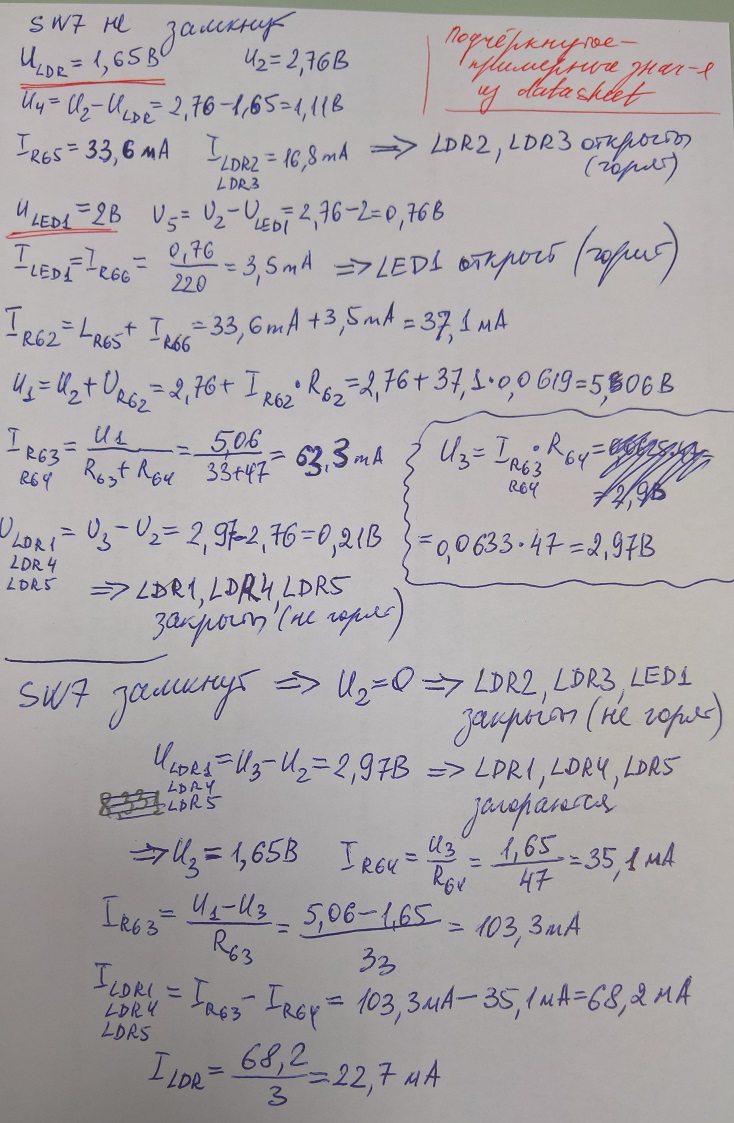 SW7 не замкнут
U_LDR = 1,65В U2 = 2,76В
Подчёркнутое –
примерные знач-я
из datasheet
U4 = U2 – U_LDR = 2,76 – 1,65 = 1,11В
I_R65 = 33,6 мА I_LDR2 LDR3 = 16,8 мА ⇒ LDR2, LDR3 открыты
(горят)
U_LED1 = 2В U5 = U2 – U_LED1 = 2,76 – 2 = 0,76В
I_LED1 = I_R66 = 0,76/220 = 3,5 мА ⇒ LED1 открыт (горит)
I_R62 = I_R65 + I_R66 = 33,6 мА + 3,5 мА = 37,1 мА
U1 = U2 + U_R62 = 2,76 + I_R62 · R62 = 2,76 + 37,1 · 0,0619 = 5,06 В
I_R63 R64 = U1/(R63 + R64) = 5,06/(33+47) = 63,3 мА
U3 = I_R63 R64 · R64 =
= 2,9В
= 0,0633 · 47 = 2,97В
U_LDR1 LDR4 LDR5 = U3 – U2 = 2,97 – 2,76 = 0,21В
⇒ LDR1, LDR4, LDR5
закрыты (не горят)
SW7 замкнут ⇒ U2 = 0 ⇒ LDR2, LDR3, LED1
закрыты (не горят)
U_LDR1 LDR4 LDR5 = U3 – U2 = 2,97В ⇒ LDR1, LDR4, LDR5
загораются
⇒ U3 = 1,65В I_R64 = U3/R64 = 1,65/47 = 35,1 мА
I_R63 = (U1 – U3)/R63 = (5,06 – 1,65)/33 = 103,3 мА
I_LDR1 LDR4 LDR5 = I_R63 – I_R64 = 103,3 мА – 35,1 мА = 68,2 мА
I_LDR = 68,2/3 = 22,7 мА